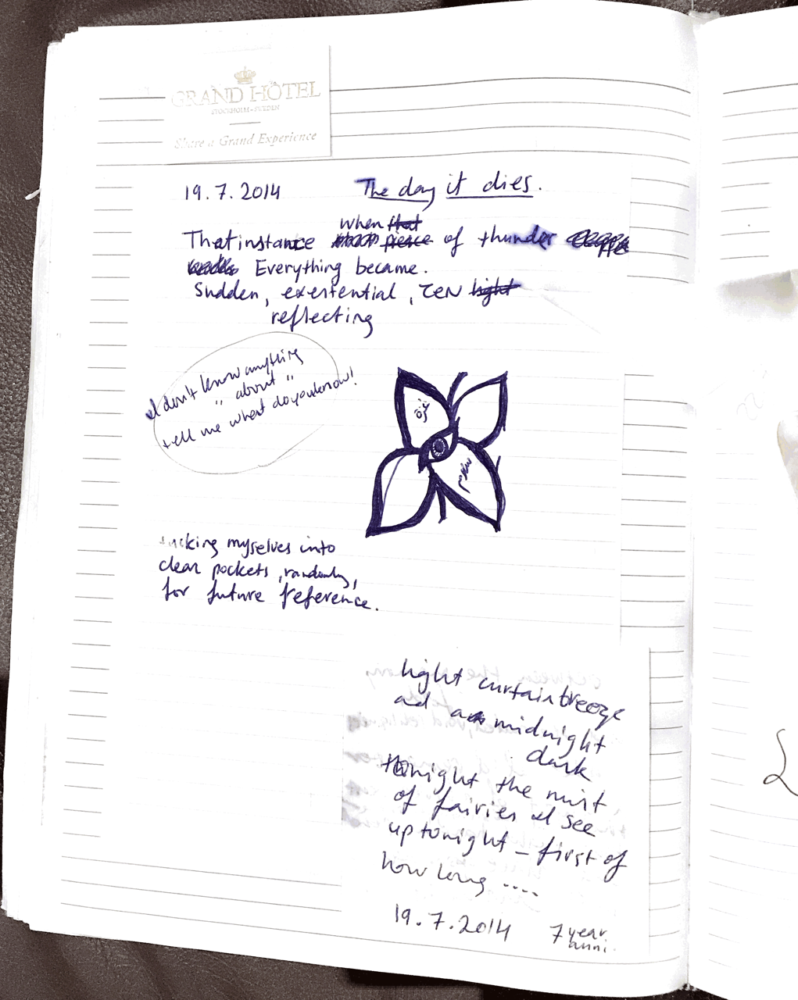 GRAND HÔTEL
STOCKHOLM · SWEDEN
Share a Grand Experience
19.7.2014 The day it dies.
when that
That instance peace of thunder
Everything became.
Sudden, exestential, ZEN light
reflecting
I don't know anything
" about "
tell me what do you know!
öje
tucking myselves into
clear pockets, randomly,
for future reference.
light curtain breeze
ad a midnight
dark
tonight the mist
of fairies I see
up tonight – first of
how long ....
19.7.2014 7 year
anni.